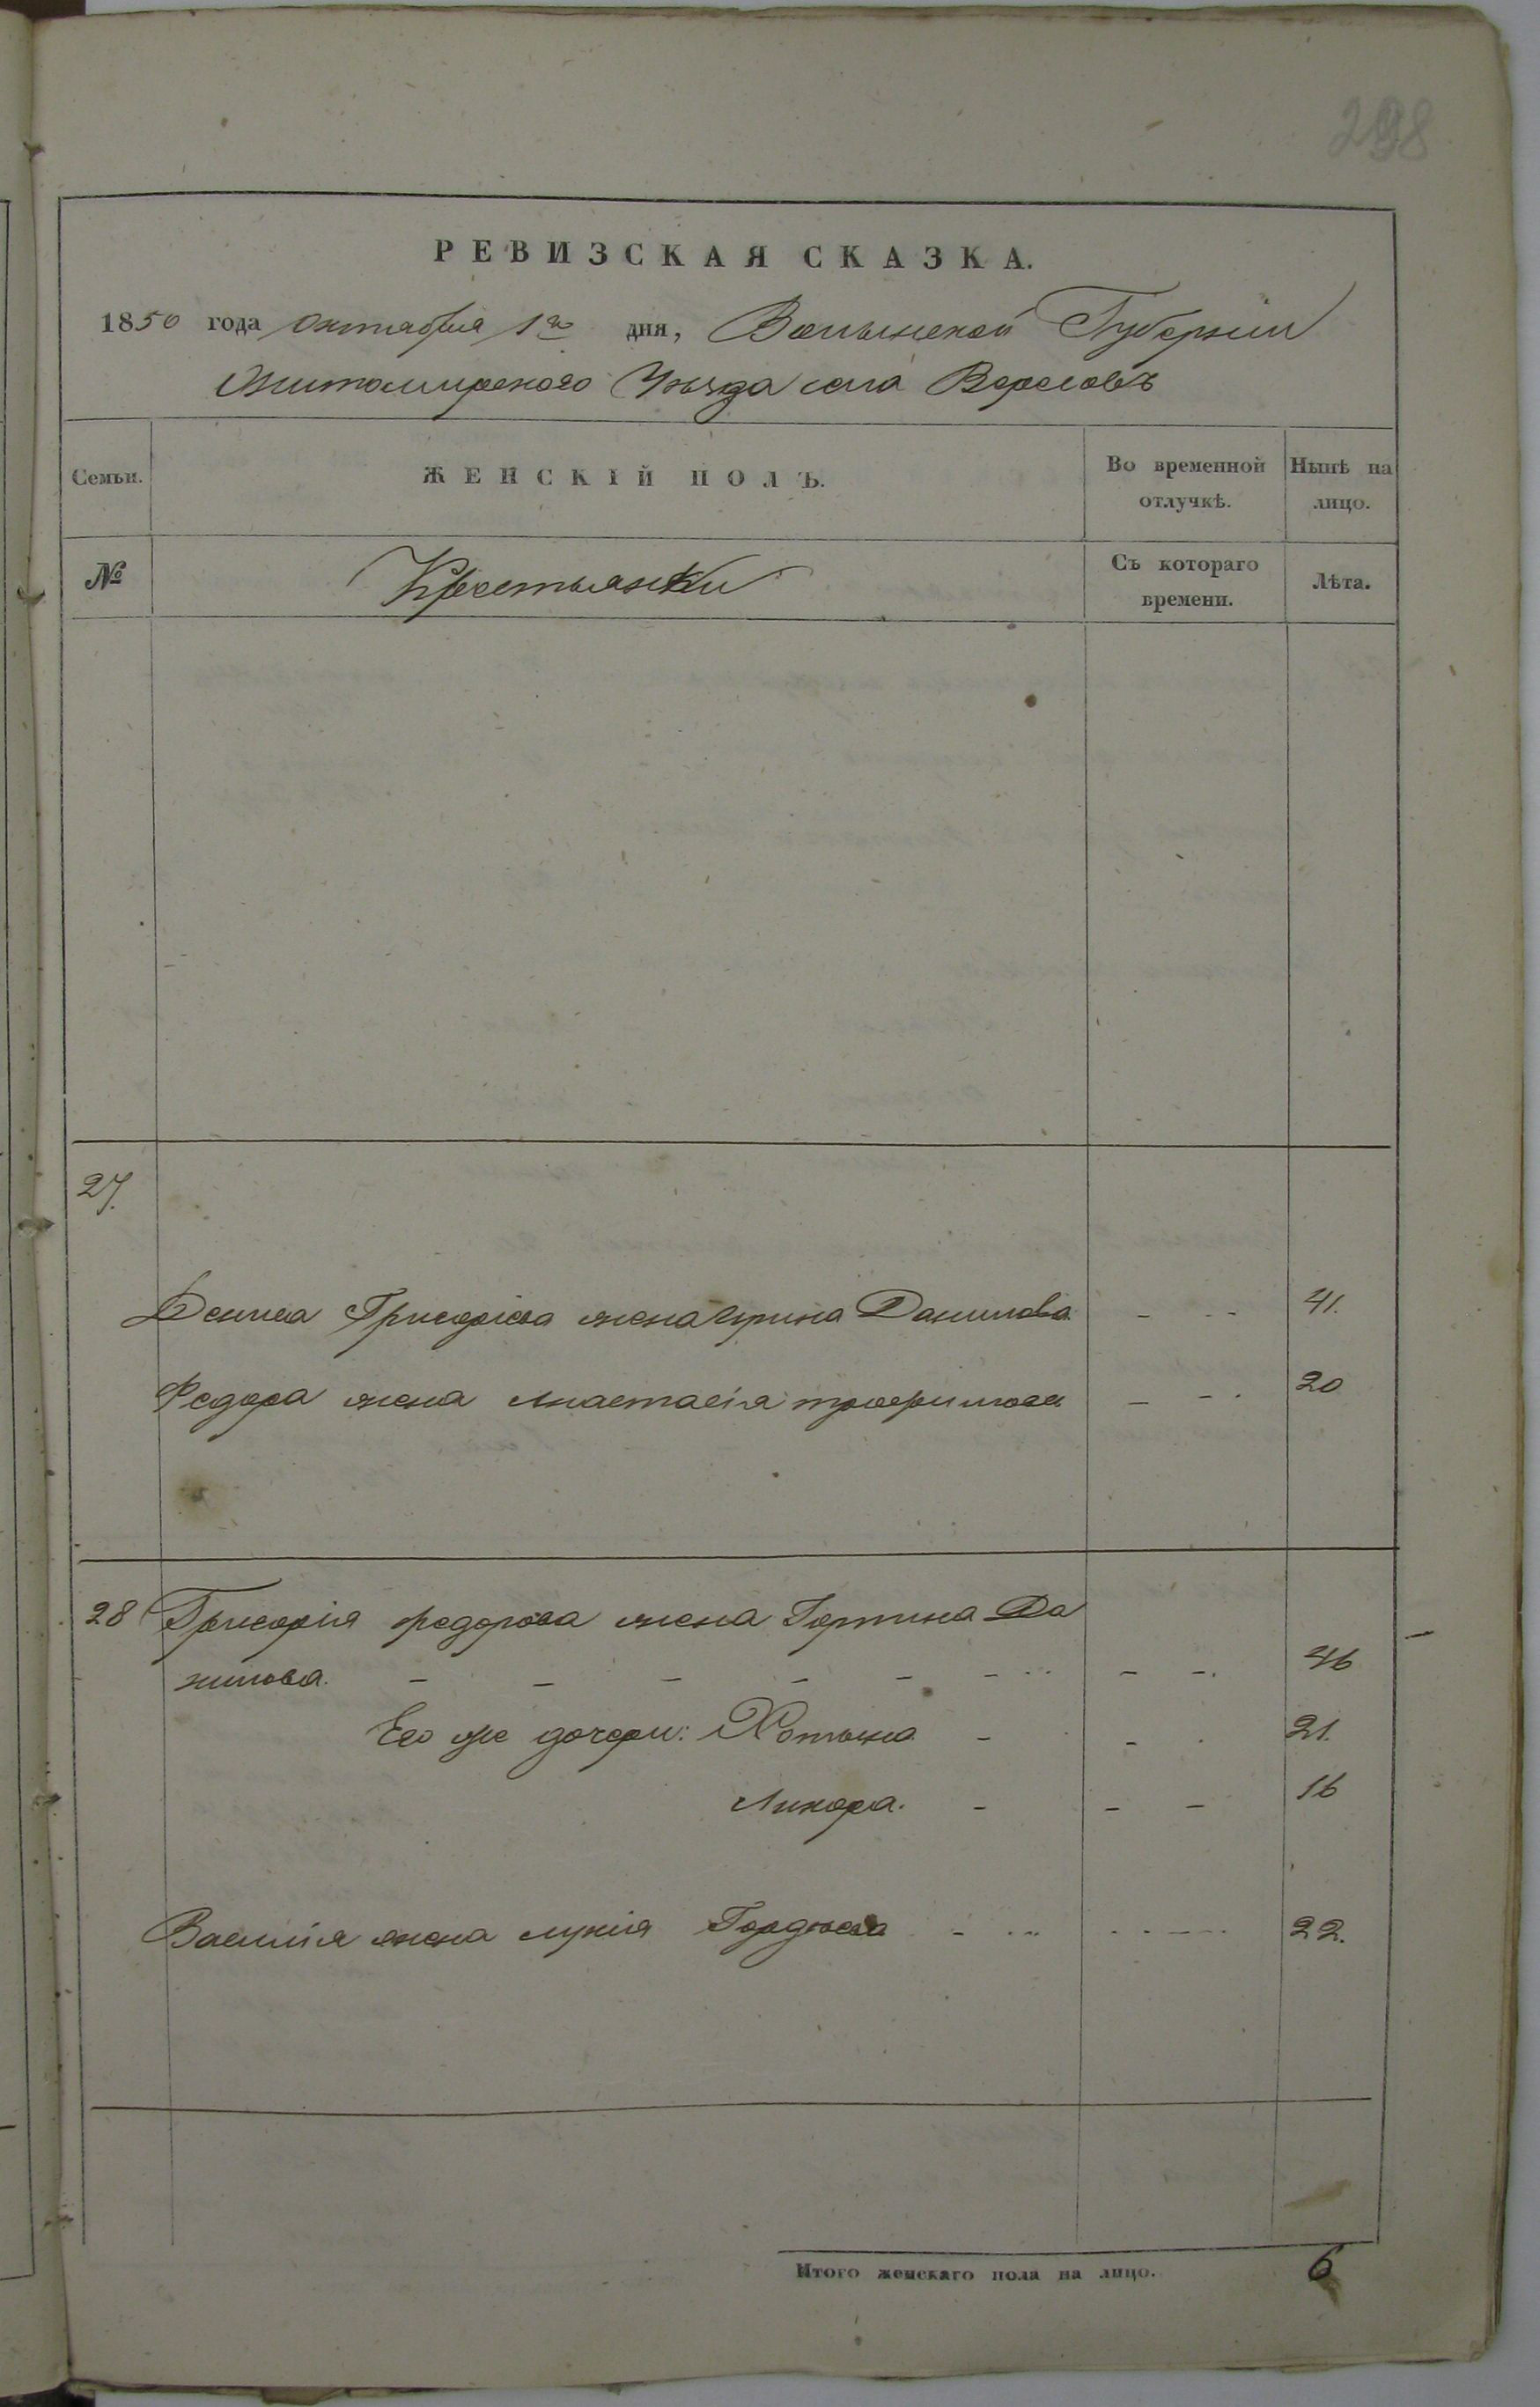 298
РЕВИЗСКАЯ СКАЗКА.
1850 года Октября 1го дня, Волынской Губерніи
Житомирского Уѣзда села Вересовъ
Семьи. ЖЕНСКІЙ ПОЛЪ. Во временной отлучкѣ. Нынѣ на лицо.
№ Крестьянки Съ котораго времени. Лѣта.
27.
Дениса Григоріева жена Ирина Данилова - - - 41.
Федора жена Анастасія трофимова - - . 20
28 Григорія федорова жена Гортина Да
нилова. - - - - - - - - . 46
Его же дочери: Хотына - - . 21.
Ликора. - - - 16
Василія жена лукія Гордѣева - - - 22.
Итого женскаго пола на лицо. 6